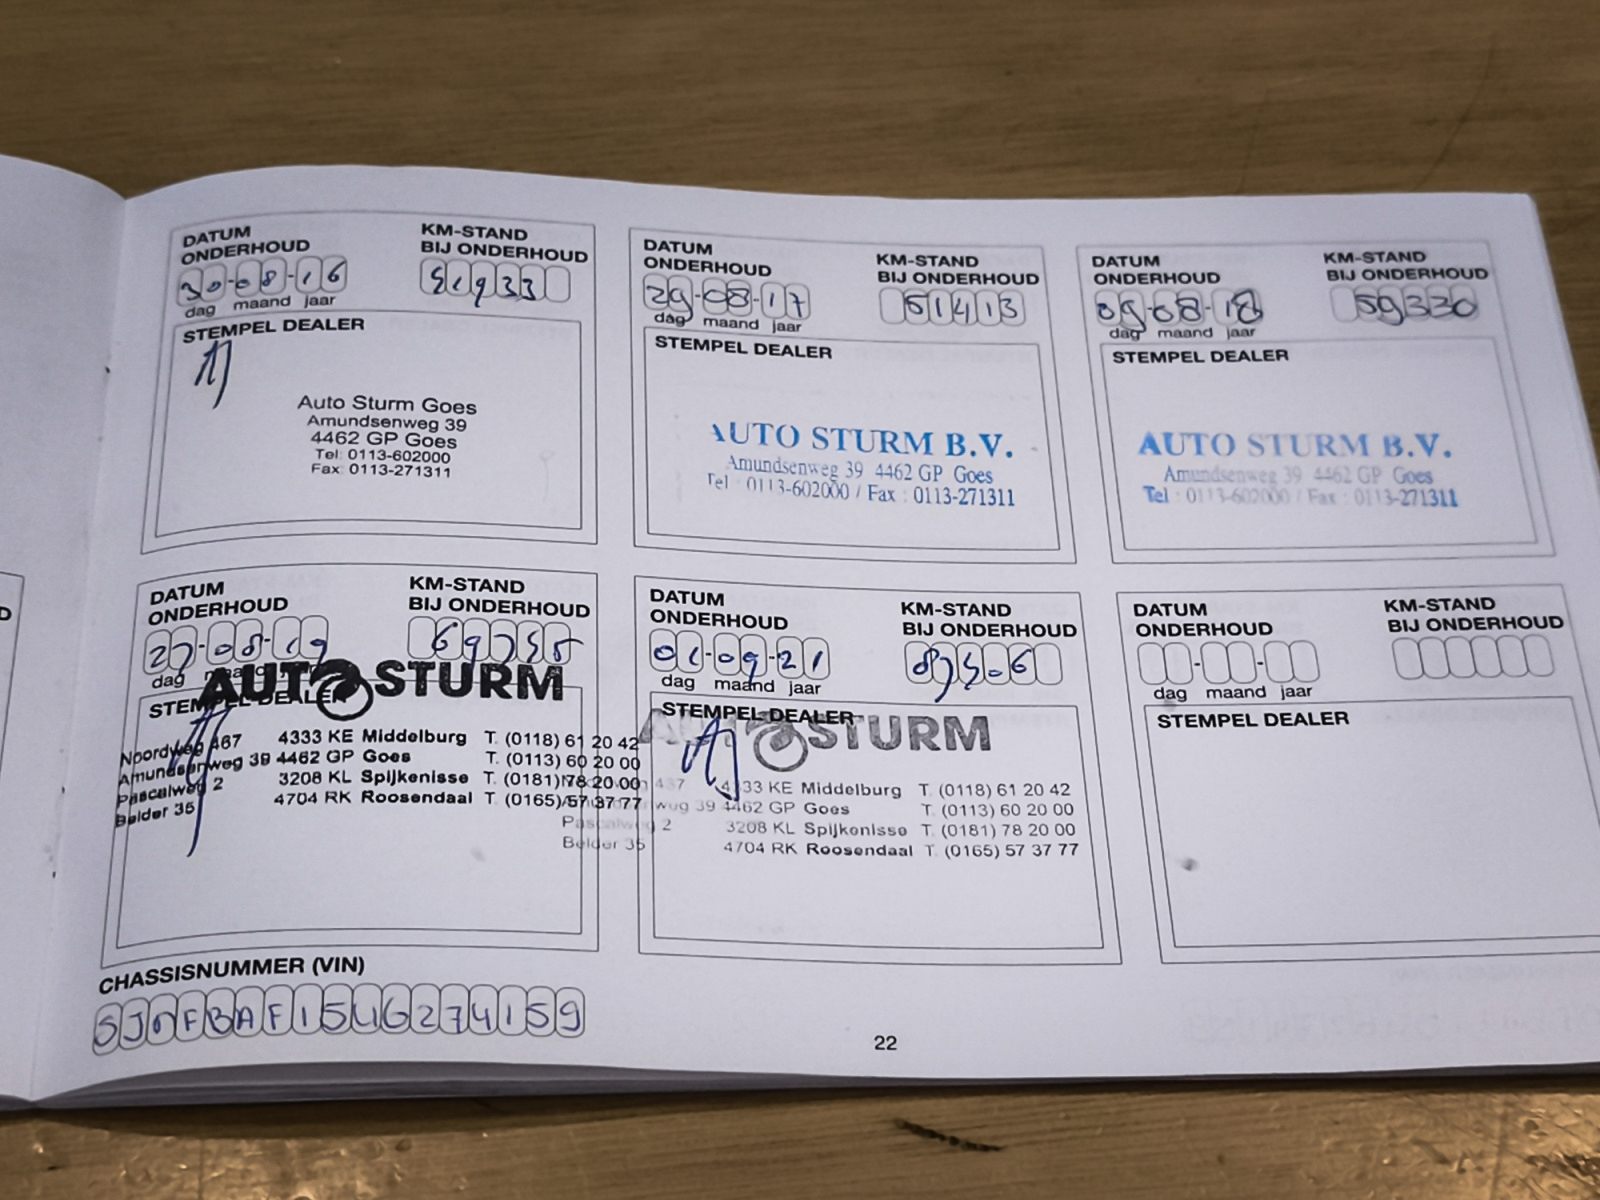 DATUM
ONDERHOUD
30-08-16
dag maand jaar
KM-STAND
BIJ ONDERHOUD
STEMPEL DEALER
Auto Sturm Goes
Amundsenweg 39
4462 GP Goes
Tel: 0113-602000
Fax: 0113-271311
DATUM
ONDERHOUD
29-08-17
dag maand jaar
KM-STAND
BIJ ONDERHOUD
51413
STEMPEL DEALER
AUTO STURM B.V.
Amundsenweg 39 4462 GP Goes
Tel : 0113-602000 / Fax : 0113-271311
DATUM
ONDERHOUD
09-08-18
dag maand jaar
KM-STAND
BIJ ONDERHOUD
59330
STEMPEL DEALER
AUTO STURM B.V.
Amundsenweg 39 4462 GP Goes
Tel : 0113-602000 / Fax : 0113-271311
DATUM
ONDERHOUD
27-08-19
dag maand jaar
KM-STAND
BIJ ONDERHOUD
69755
STEMPEL DEALER
AUTO STURM
Noordweg 467 4333 KE Middelburg T. (0118) 61 20 42
Amundsenweg 39 4462 GP Goes T. (0113) 60 20 00
Pascalweg 2 3208 KL Spijkenisse T. (0181) 78 20 00
Belder 35 4704 RK Roosendaal T. (0165) 57 37 77
DATUM
ONDERHOUD
01-09-21
dag maand jaar
KM-STAND
BIJ ONDERHOUD
STEMPEL DEALER
AUTO STURM
4333 KE Middelburg T. (0118) 61 20 42
39 4462 GP Goes T. (0113) 60 20 00
Pascalweg 2 3208 KL Spijkenisse T. (0181) 78 20 00
Belder 35 4704 RK Roosendaal T. (0165) 57 37 77
DATUM
ONDERHOUD
dag maand jaar
KM-STAND
BIJ ONDERHOUD
STEMPEL DEALER
CHASSISNUMMER (VIN)
22